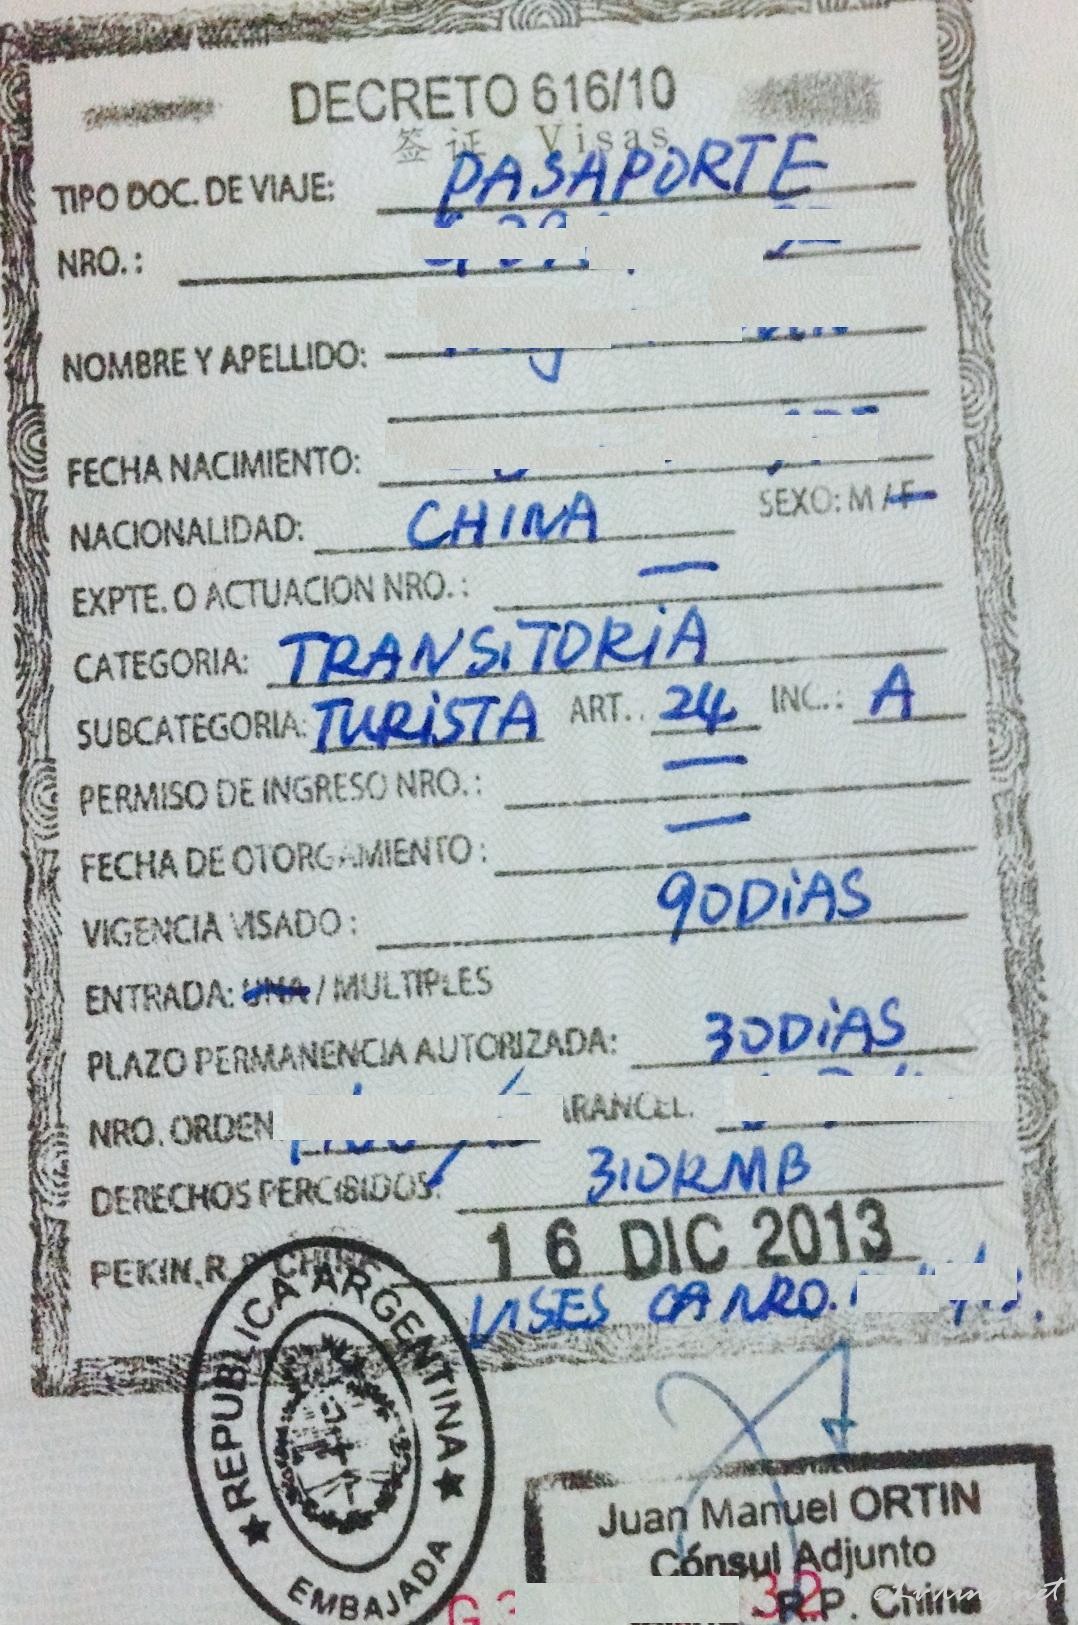 DECRETO 616/10
签证 Visas
TIPO DOC. DE VIAJE: PASAPORTE
NRO. :
NOMBRE Y APELLIDO:
FECHA NACIMIENTO:
NACIONALIDAD: CHINA SEXO: M / F
EXPTE. O ACTUACION NRO. : —
CATEGORIA: TRANSITORIA
SUBCATEGORIA: TURISTA ART.: 24 INC.: A
PERMISO DE INGRESO NRO. : —
FECHA DE OTORGAMIENTO : —
VIGENCIA VISADO : 90 DIAS
ENTRADA: UNA / MULTIPLES
PLAZO PERMANENCIA AUTORIZADA: 30 DIAS
NRO. ORDEN ARANCEL.
DERECHOS PERCIBIDOS: 310RMB
PEKIN, R. 16 DIC 2013
REPUBLICA ARGENTINA
EMBAJADA
Juan Manuel ORTIN
Cónsul Adjunto
R.P. China